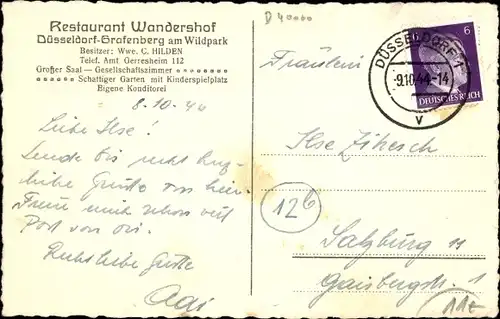 Restaurant Wandershof
Düsseldorf-Grafenberg am Wildpark
Besitzer: Wwe. C. HILDEN
Telef. Amt Gerresheim 112
Großer Saal — Gesellschaftszimmer
Schattiger Garten mit Kinderspielplatz
Eigene Konditorei
8.10.44
Liebe Ilse!
Sende Dir recht herz-
liche Grüße von hier.
Freue mich schon auf
Post von Dir.
Recht liebe Grüße
D 40000
DÜSSELDORF 1
-9.10.44-14
V
6
DEUTSCHES REICH
Fräulein
Ilse
Salzburg 11
126